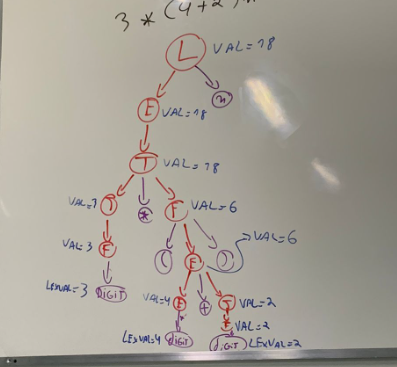 3 * (4+2) n
L VAL=18
E VAL=18
n
T VAL=18
VAL=3 T
*
F VAL=6
VAL=3 F
(
E
)
VAL=6
LEXVAL=3 DIGIT
VAL=4 E
+
T VAL=2
F VAL=2
LEXVAL=4 DIGIT
DIGIT LEXVAL=2